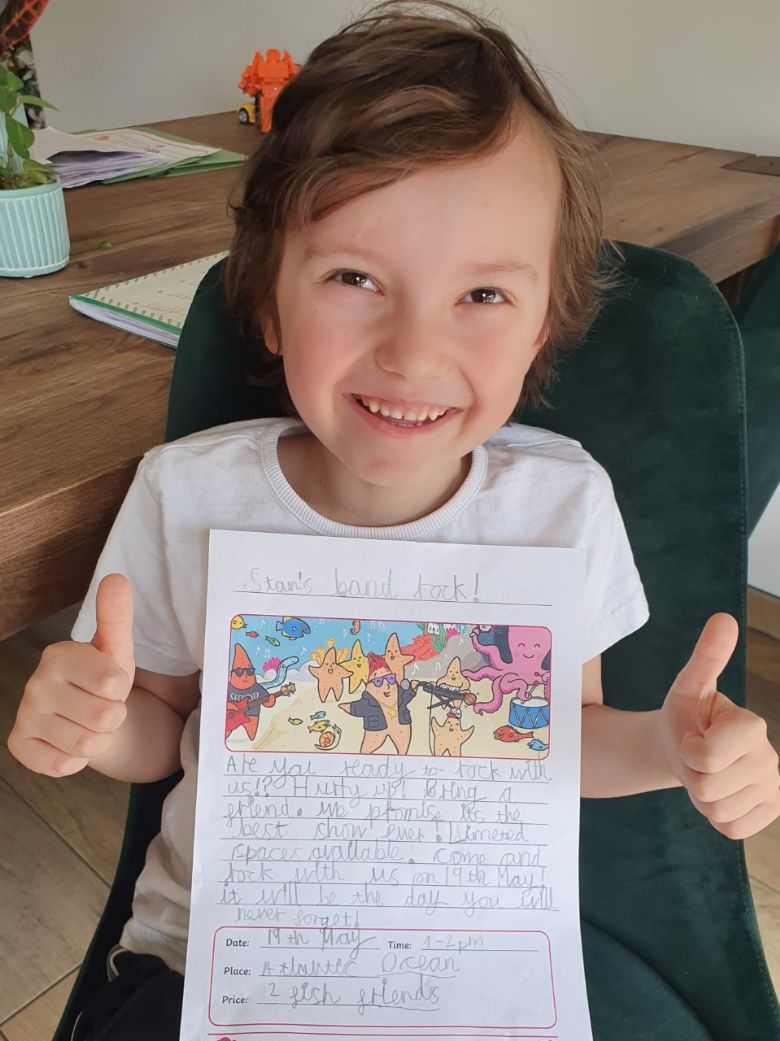 Stan's band rock!
SECURITY
Are you ready to rock with
us!? Hurry up! Bring a
friend. We promise its the
best show ever! Limeted
spaces available. Come and
rock with us on 19th May!
it will be the day you will
never forget!
Date: 19th May Time: 1-2pm
Place: Atlantic Ocean
Price: 2 fish friends